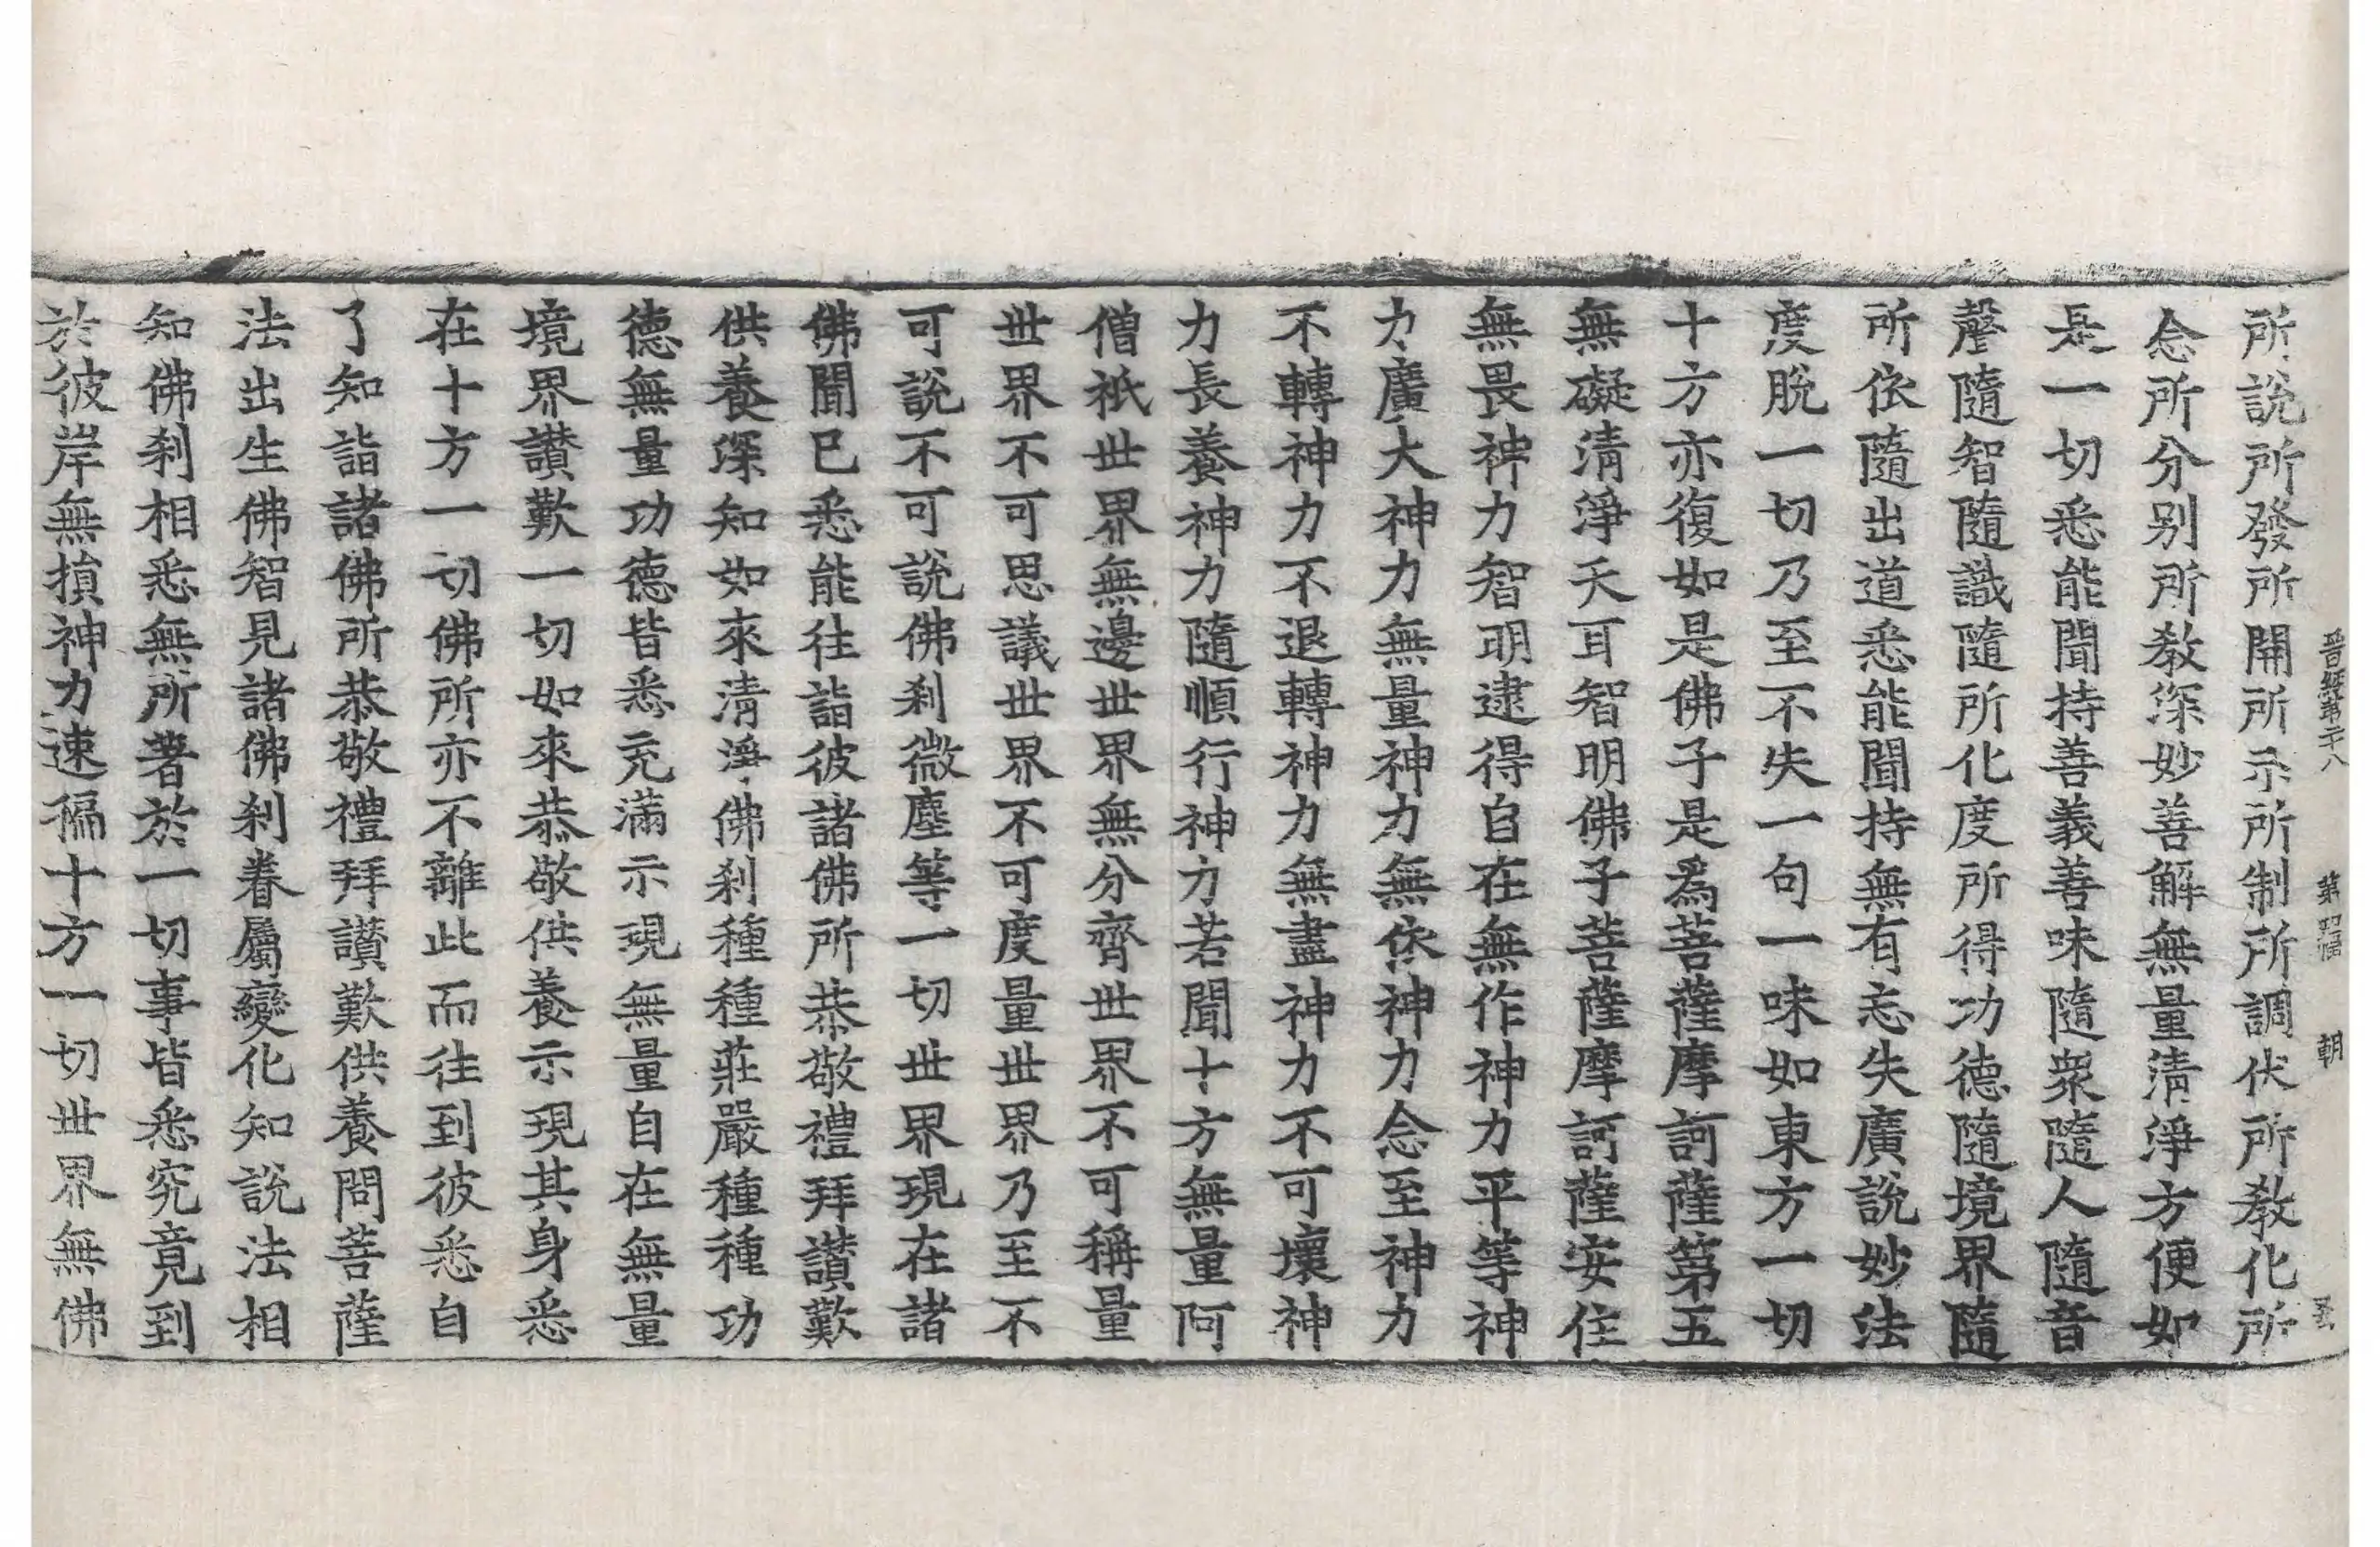 晉經第二十八 第四幅 朝
所說所發所開所示所制所調伏所敎化所
念所分別所敎深妙善解無量清淨方便如
是一切悉能聞持善義善味隨衆隨人隨音
聲隨智隨識隨所化度所得功德隨境界隨
所依隨出道悉能聞持無有忘失廣說妙法
度脫一切乃至不失一句一味如東方一切
十方亦復如是佛子是爲菩薩摩訶薩第五
無礙清淨天耳智明佛子菩薩摩訶薩安住
無畏神力智明逮得自在無作神力平等神
力廣大神力無量神力無依神力念至神力
不轉神力不退轉神力無盡神力不可壞神
力長養神力隨順行神力若聞十方無量阿
僧祇世界無邊世界無分齊世界不可稱量
世界不可思議世界不可度量世界乃至不
可說不可說佛刹微塵等一切世界現在諸
佛聞已悉能往詣彼諸佛所恭敬禮拜讃歎
供養深知如來清淨佛刹種種莊嚴種種功
德無量功德皆悉充滿示現無量自在無量
境界讃歎一切如來恭敬供養示現其身悉
在十方一切佛所亦不離此而往到彼悉自
了知詣諸佛所恭敬禮拜讃歎供養問菩薩
法出生佛智見諸佛刹眷屬變化知說法相
知佛刹相悉無所著於一切事皆悉究竟到
於彼岸無損神力速徧十方一切世界無佛